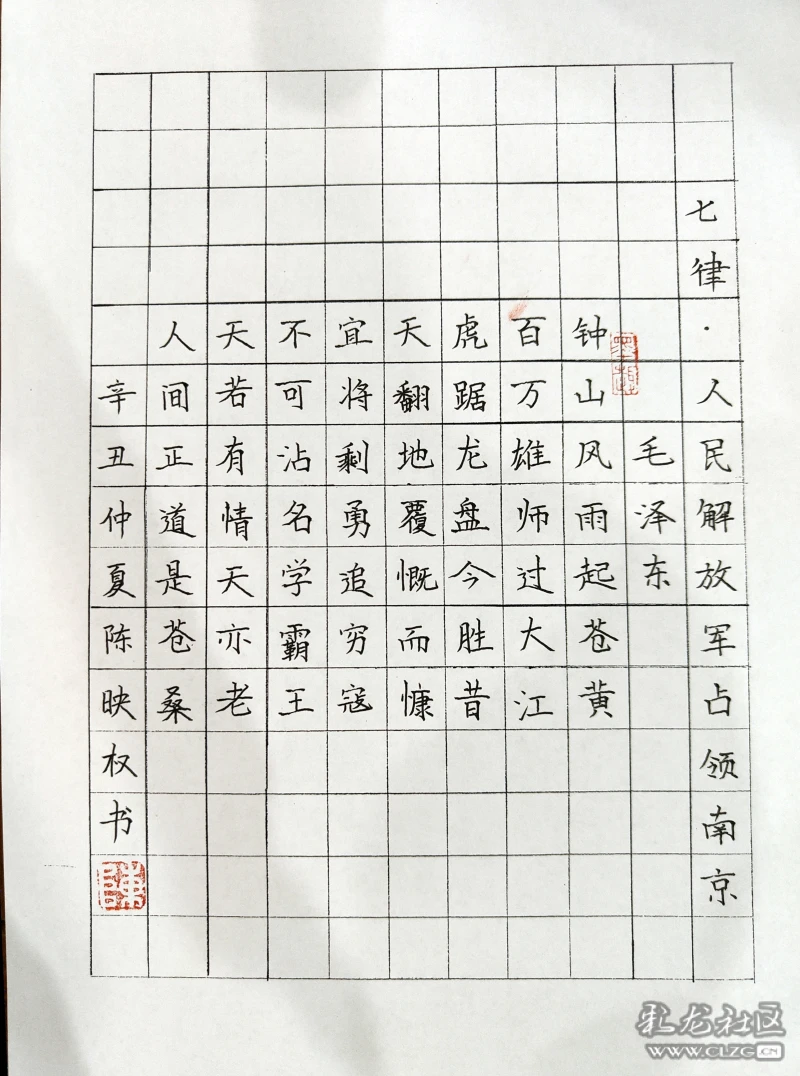 七律·人民解放军占领南京
毛泽东
钟山风雨起苍黄
百万雄师过大江
虎踞龙盘今胜昔
天翻地覆慨而慷
宜将剩勇追穷寇
不可沽名学霸王
天若有情天亦老
人间正道是苍桑
辛丑仲夏陈映权书
化龙社区
www.CLZG.CN